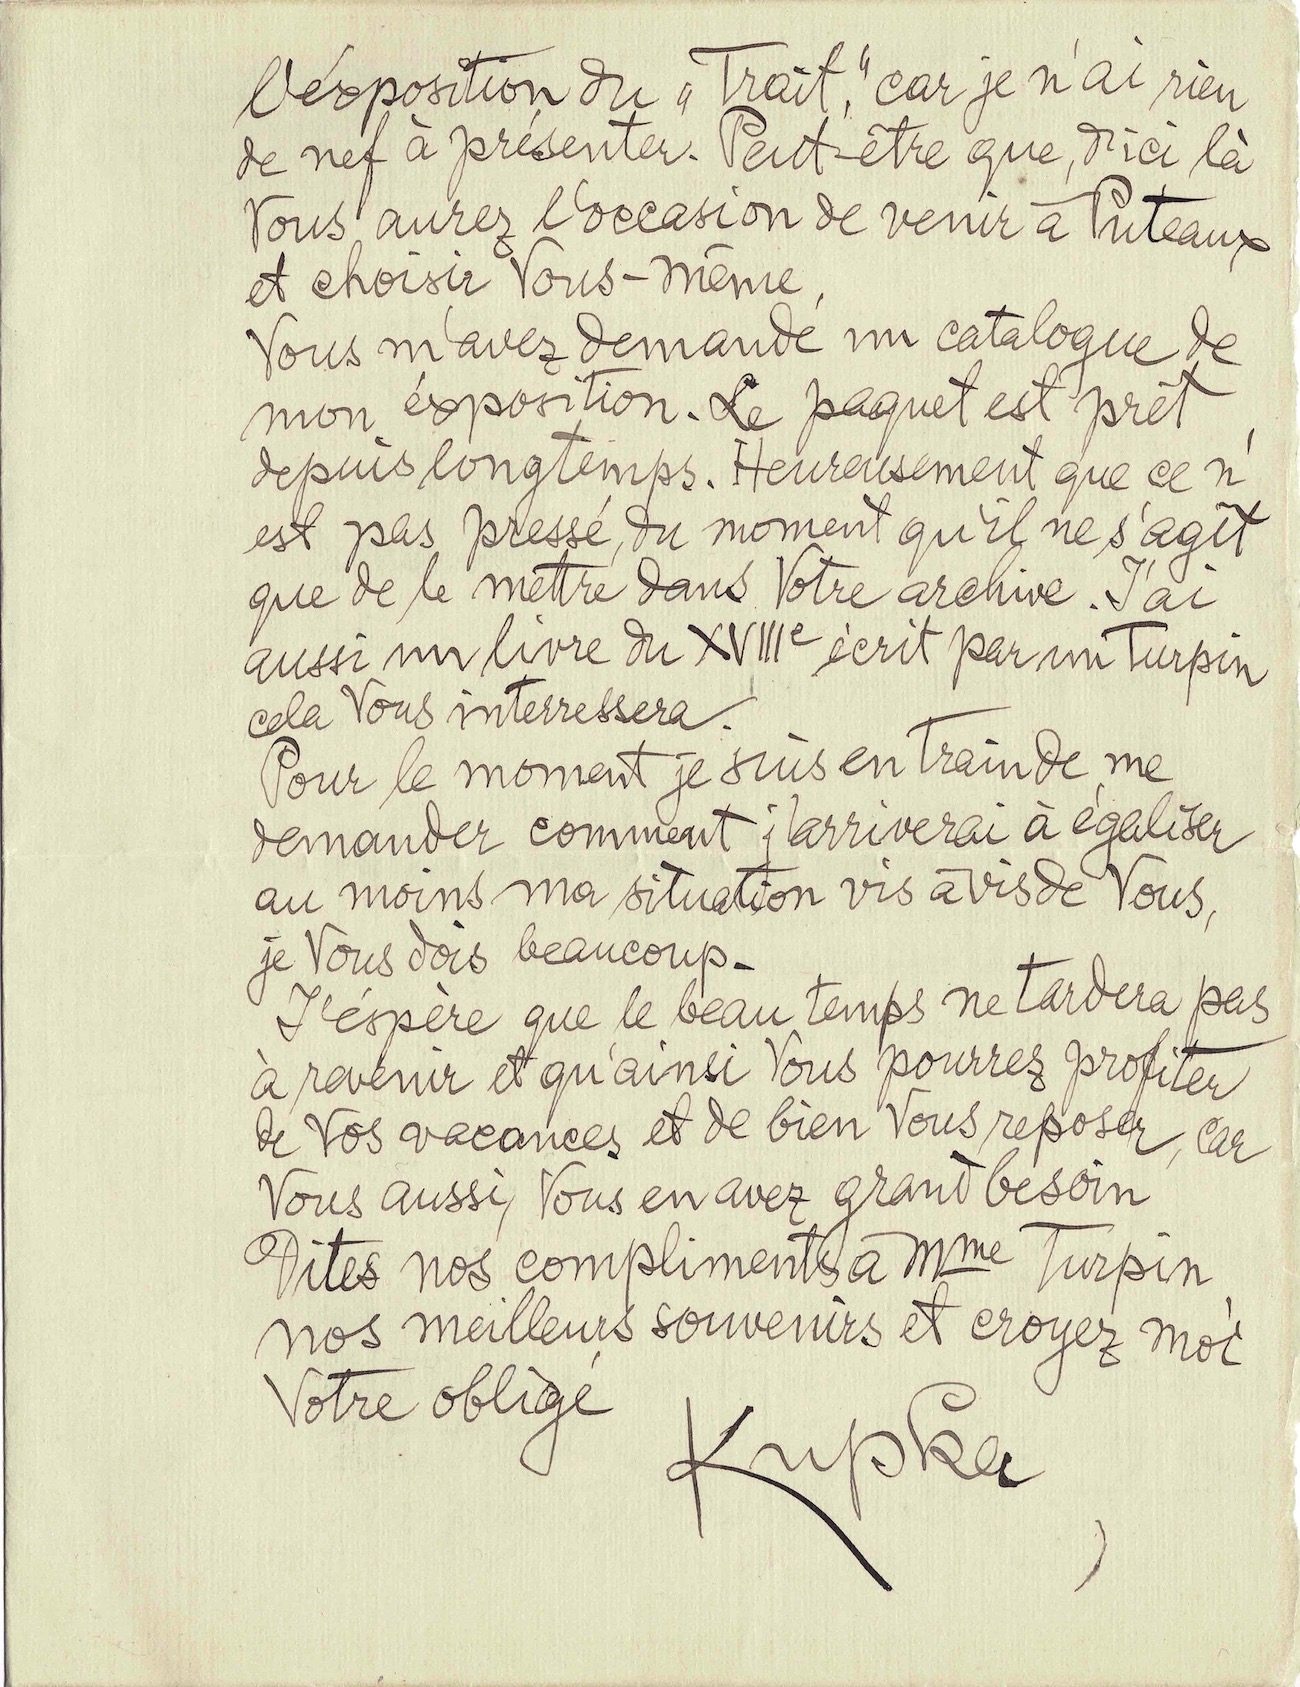 l'éxposition du „Trait," car je n'ai rien
de nef à présenter. Peut-être que, d'ici là
Vous aurez l'occasion de venir à Puteaux
et choisir Vous-même,
Vous m'avez demandé un catalogue de
mon éxposition. Le paquet est prêt
depuis longtemps. Heureusement que ce n'
est pas pressé, du moment qu'il ne s'agît
que de le mettre dans Votre archive. J'ai
aussi un livre du XVIIIe écrit par un Turpin
cela Vous interressera.
Pour le moment je suis en train de me
demander comment j'arriverai à égaliser
au moins ma situation vis à vis de Vous,
je Vous dois beaucoup-
J'éspère que le beau temps ne tardera pas
à revenir et qu'ainsi Vous pourrez profiter
de Vos vacances et de bien Vous reposer, car
Vous aussi, Vous en avez grand besoin
Dites nos compliments à Mme Turpin
nos meilleurs souvenirs et croyez moi
Votre obligé
Kupka